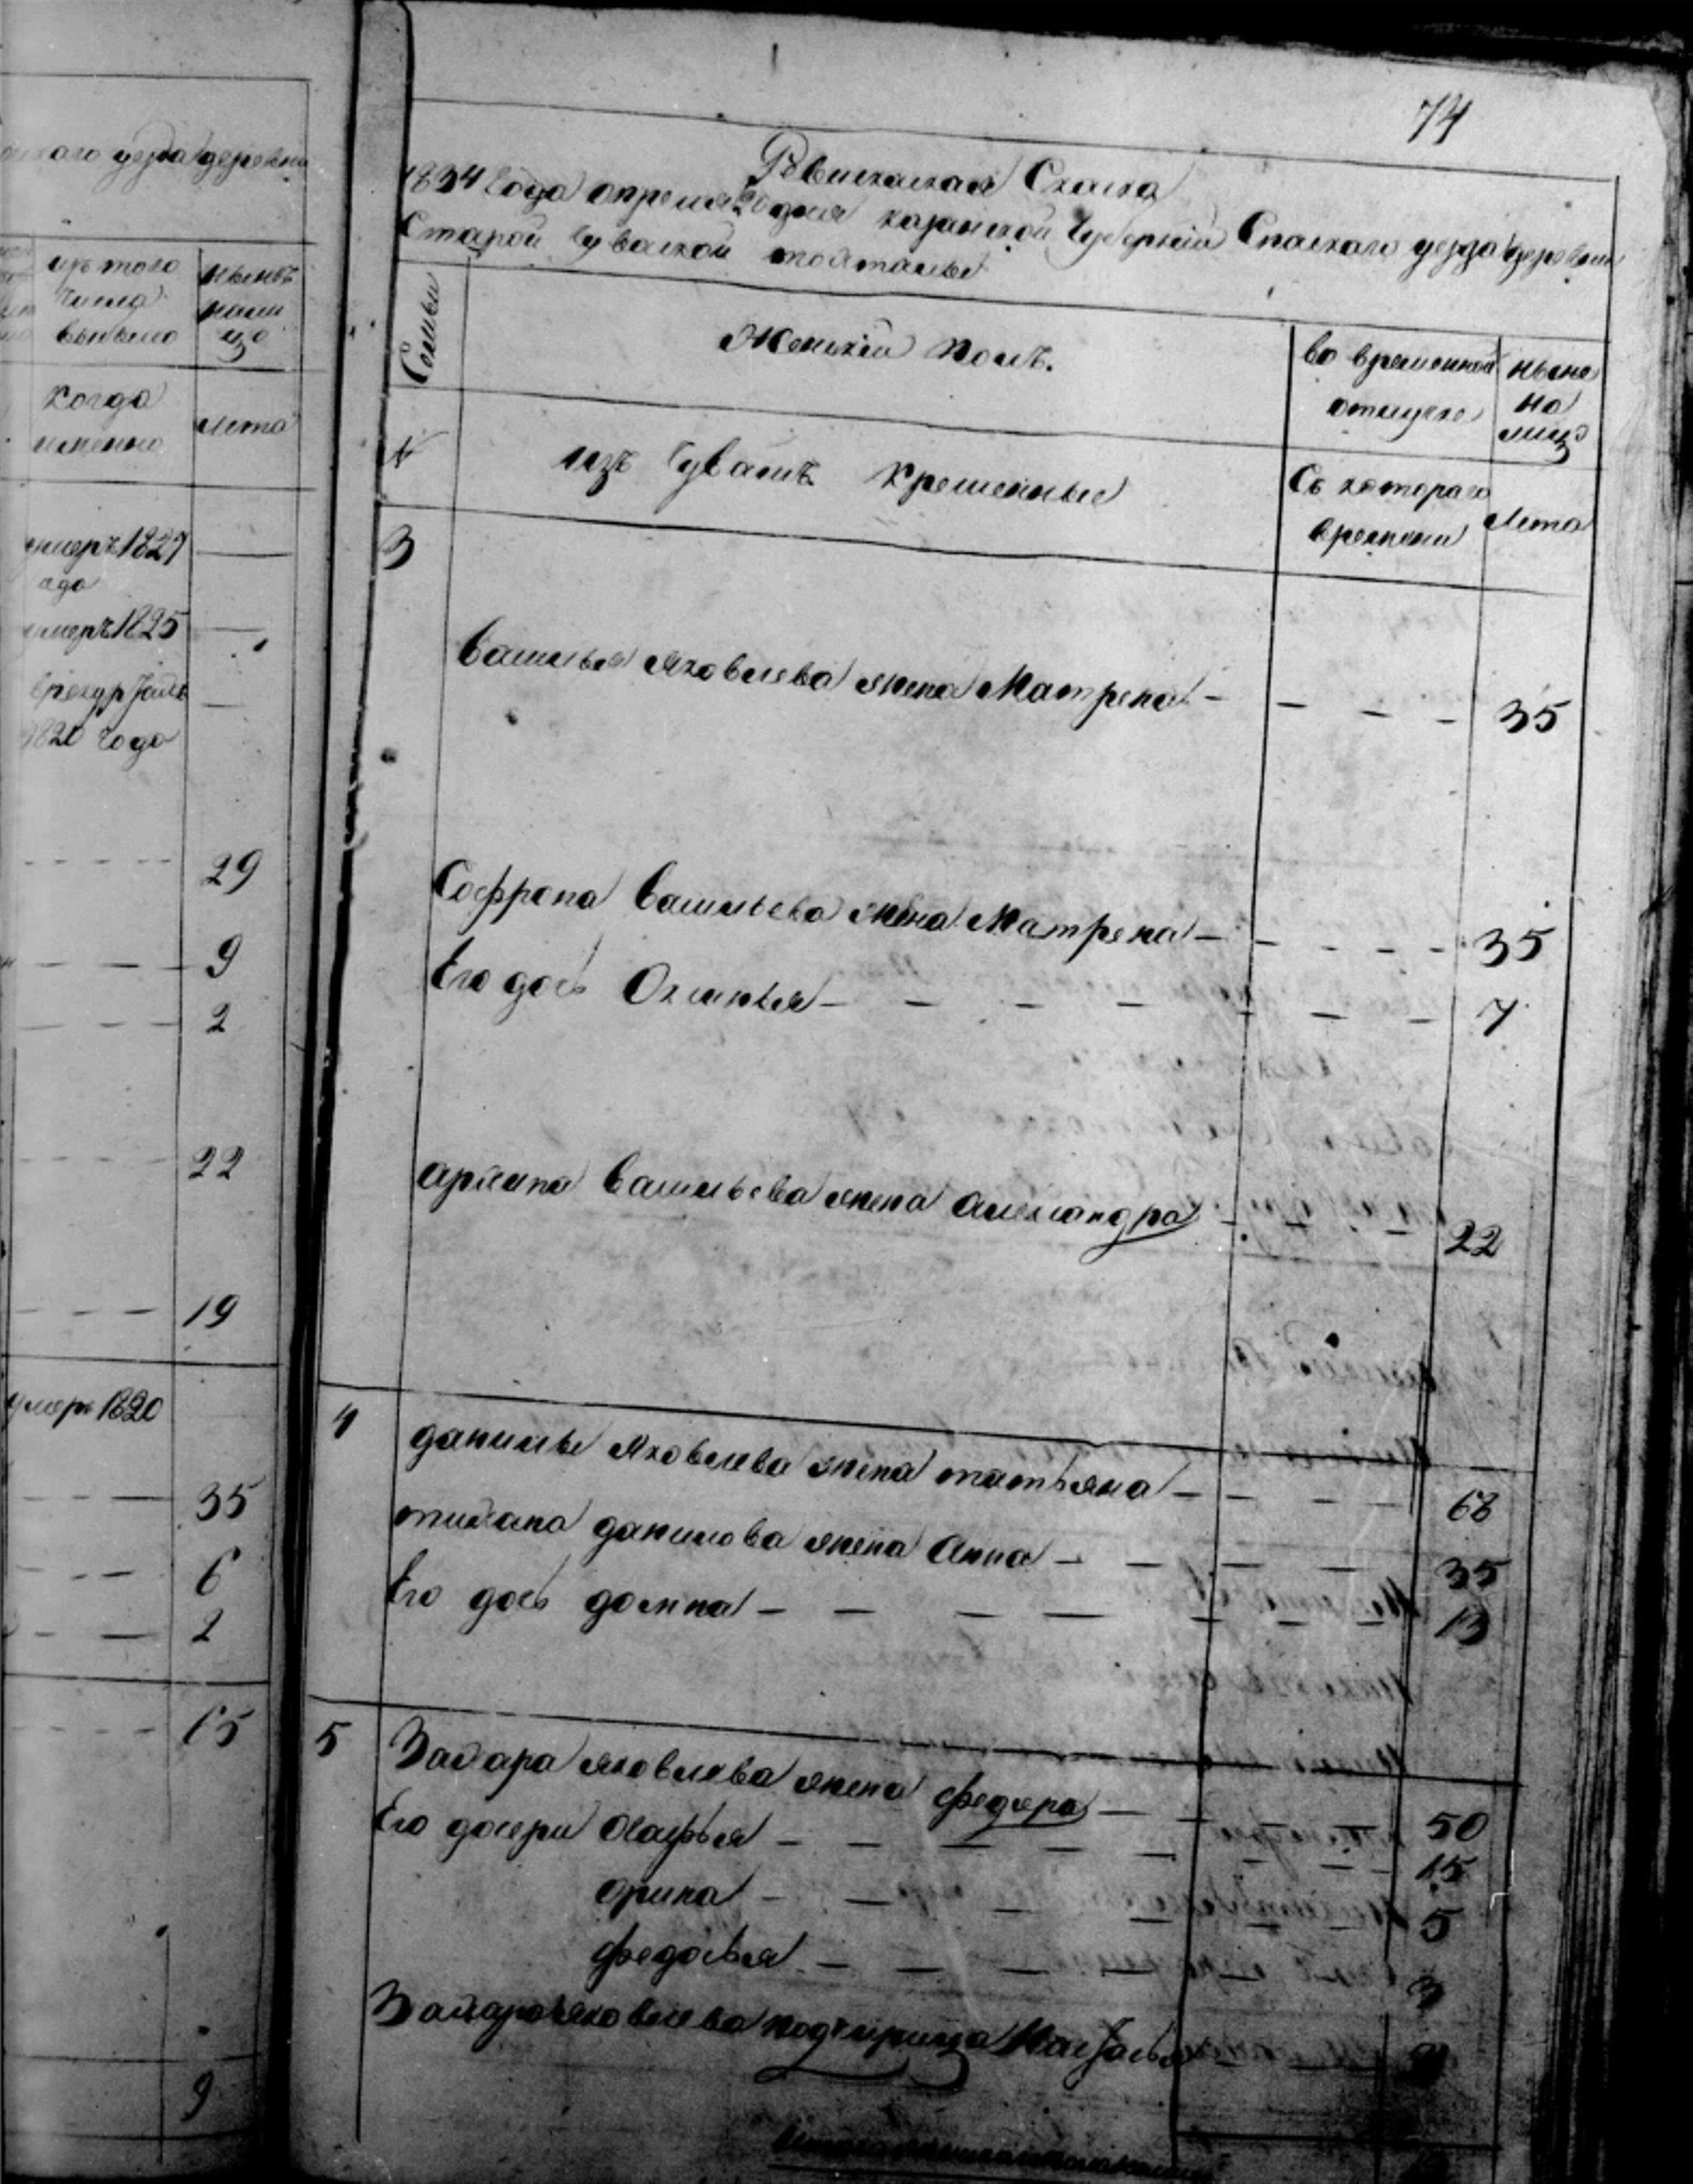 уезда деревни
изъ того
числа
выбыло
ныне
нали
цо
когда
именно
лета
умеръ 1827
года
умеръ 1825
врекруты
1820 года
29
9
2
22
19
умеръ 1820
35
6
2
15
9
74
Ревизская Скаска
1834 года апреля 20 дня казанской Губернии Спаскаго уезда деревни
Старой Чувашской
Семьи
Женский полъ.
во временной
отлучке
ныне
на
лицо
№
изъ Чувашъ крещенные
Съ котораго
времени
Лета
3
Василья Яковлева жена Матрена - - - - 35
Софрона Васильева жена Матрена - - - - 35
Его дочь Оксинья - - - - - - - 7
архипа Васильева жена александра - - - 22
4
данилы Яковлева жена татьяна - - - - 68
данилова жена Анна - - - - 35
Его дочь домна - - - - - - - 13
5
Захара яковлева жена федора - - - - 50
Его дочери Агафья - - - - - - - 15
орина - - - - - - 5
федосья - - - - - - 3
Захара яковлева падчерица